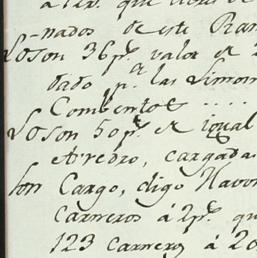 a 12 p.s que
-nados de este Ram
Lo son 36 p.s valor de 2
dado p.a las Limosn
Combentos ....
Lo son 50 p.s de igual
Arredro, cargada
Son Cargo, digo Havon
Carneros á 2 p.s qu
123 carneros á 20